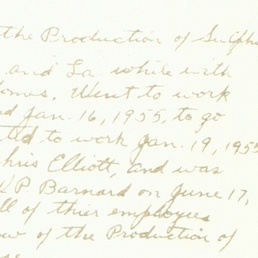 the Production of Sulphu
and La. while with
omes. Went to work
d Jan. 16, 1955, to go
ted to work Jan. 19, 1955
hris Elliott, and was
K P Barnard on June 17,
ll of thier employees
ow of the Production of